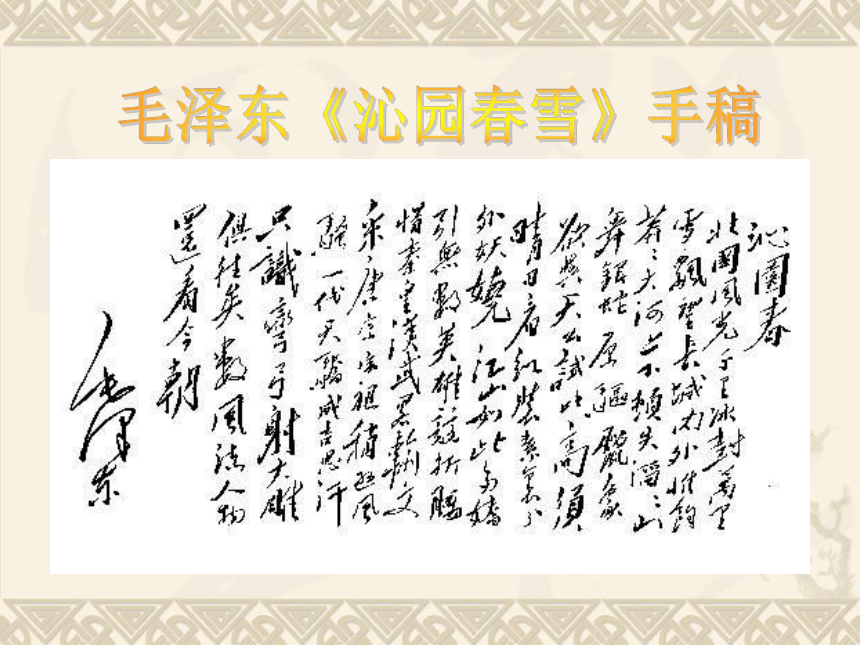 毛泽东《沁园春雪》手稿
沁園春
北國風光千里冰封萬里
雪飄望長城内外惟餘
莽〻大河上下頓失滔〻山
舞銀蛇原驅臘象
欲與天公試比高須
晴日看紅裝素裹分
外妖嬈江山如此多嬌
引無數英雄競折腰
惜秦皇漢武畧輸文
采唐宗宋祖稍遜風
騷一代天驕成吉思汗
只識彎弓射大雕
俱往矣數風流人物
還看今朝
毛澤東